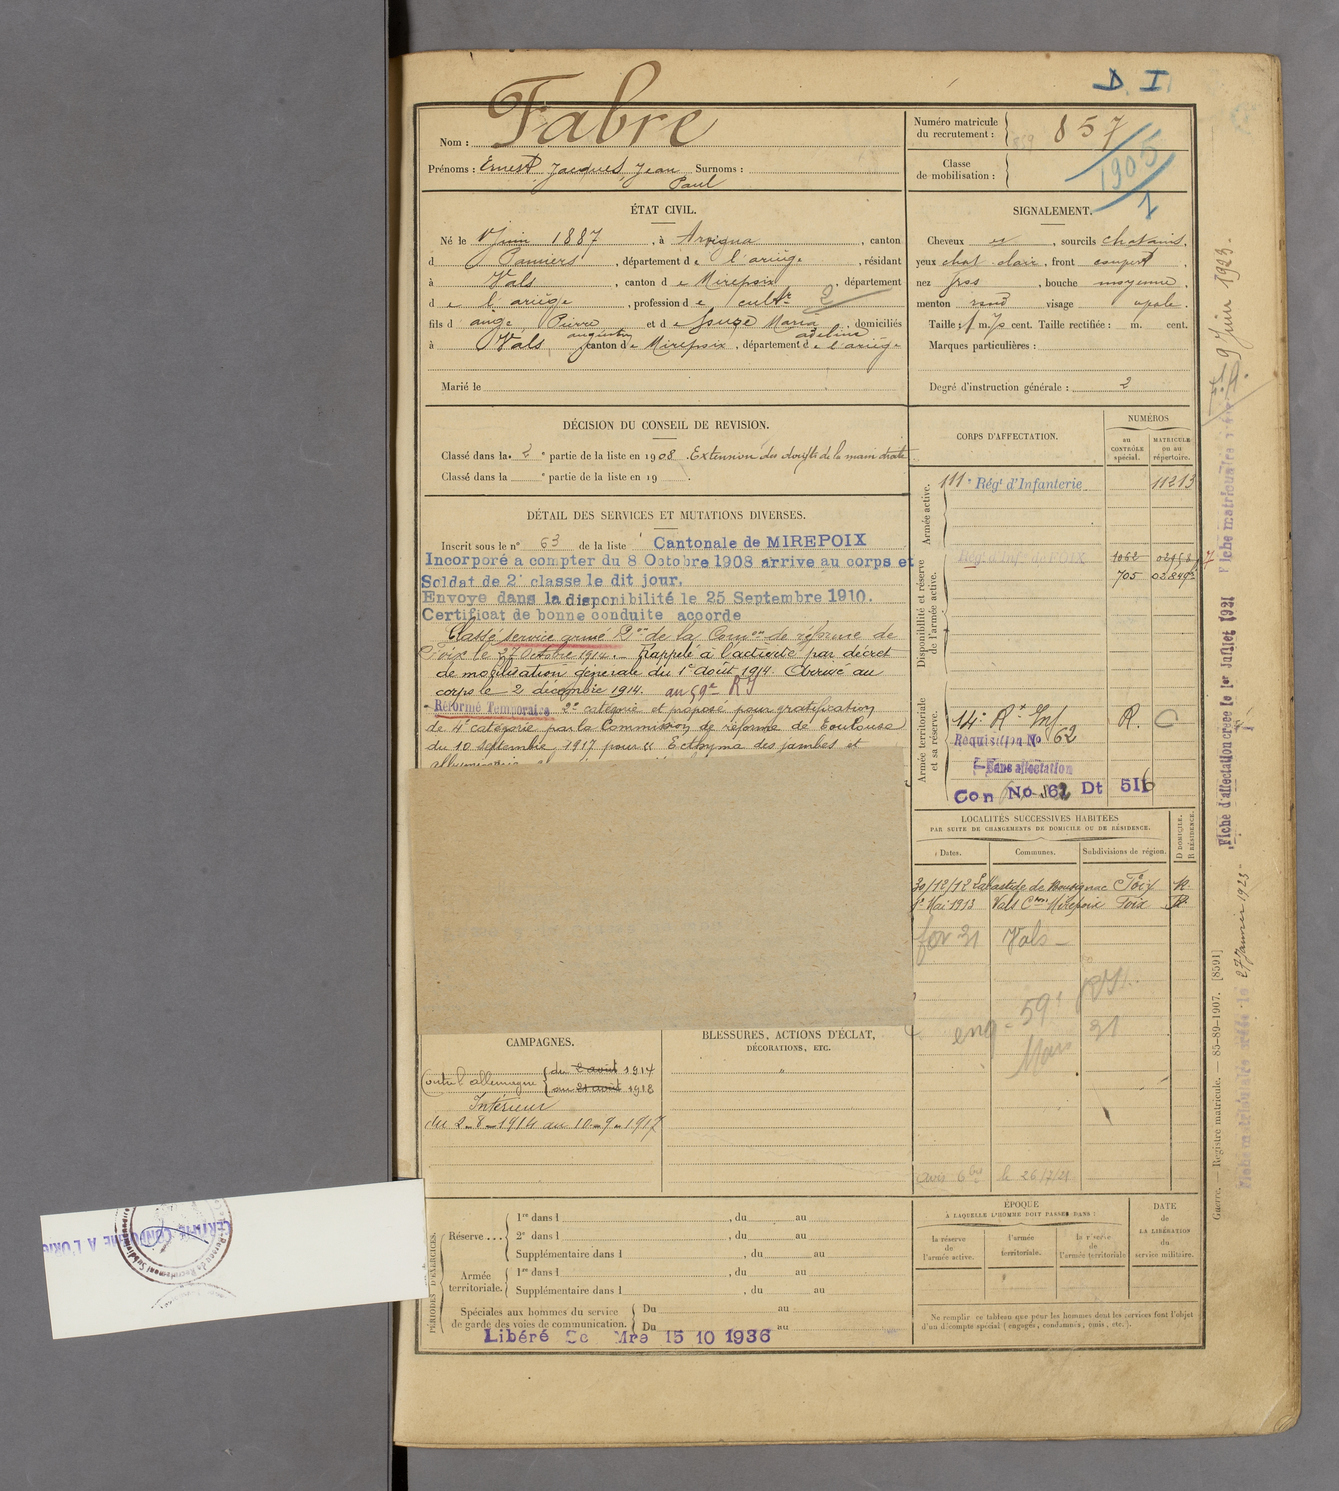 D. I.
Nom : Fabre
Prénoms : Ernest, Jacques, Jean Surnoms :
Paul
Numéro matricule
du recrutement : 857
Classe
de mobilisation : 1905
1
ÉTAT CIVIL.
Né le 1er Juin 1887, à Arvigna, canton
d Pamiers, département de l'ariège, résidant
à Vals, canton de Mirepoix, département
de l'ariège, profession de cultr 2
fils d'ange, Pierre et de Maria, domiciliés
augustin adeline
à Vals, canton de Mirepoix, département de l'ariège
Marié le
SIGNALEMENT.
Cheveux et, sourcils chatains,
yeux chat. clair, front
nez gros, bouche moyenne,
menton rond visage ovale.
Taille : 1 m. 70 cent. Taille rectifiée : m. cent.
Marques particulières :
Degré d'instruction générale : 2
DÉCISION DU CONSEIL DE REVISION.
Classé dans la 2e partie de la liste en 1908. Extension des doigts de la main droite
Classé dans la e partie de la liste en 19 .
DÉTAIL DES SERVICES ET MUTATIONS DIVERSES.
Inscrit sous le n° 63 de la liste Cantonale de MIREPOIX
Incorporé a compter du 8 Octobre 1908 arrive au corps et
Soldat de 2e classe le dit jour.
Envoye dans la disponibilité le 25 Septembre 1910.
Certificat de bonne conduite accorde
Classé service armé Don de la Comon de réforme de
Foix le 27 Octobre 1914. Rappelé à l'activité par décret
de mobilisation générale du 1er Août 1914. Arrivé au
corps le 2 décembre 1914. au 59e RI
Réformé Temporaire 2e catégorie et proposé pour gratification
de 4e catégorie par la Commission de réforme de Toulouse
du 10 septembre 1917 pour « Ecthyma des jambes et
CORPS D'AFFECTATION.
NUMÉROS
AU CONTRÔLE spécial.
MATRICULE ou au répertoire.
Armée active.
111e Régt d'Infanterie 11213
Disponibilité et réserve de l'armée active.
Régt d'Inf de FOIX 1062
705
Armée territoriale et sa réserve.
14e Rt Inf. R. C
Requisition No 62
Sans affectation
Con No 62 Dt 516
LOCALITÉS SUCCESSIVES HABITÉES
PAR SUITE DE CHANGEMENTS DE DOMICILE OU DE RÉSIDENCE.
Dates. Communes. Subdivisions de région. D DOMICILE. R RÉSIDENCE.
30/12/12 Labastide de Bousignac Foix R
1er Mai 1913 Vals Con Mirepoix Foix R
31 Vals
59e RI.
Mars 31
avis le 26/7/21
CAMPAGNES.
Contre l'allemagne du 2 août 1914
au 21 août 1918
Intérieur
du 2-8-1914 au 10-9-1917
BLESSURES, ACTIONS D'ÉCLAT,
DÉCORATIONS, ETC.
"
PÉRIODES D'EXERCICES.
Réserve... 1re dans l , du au
2e dans l , du au
Supplémentaire dans l , du au
Armée territoriale. 1re dans l , du au
Supplémentaire dans l , du au
Spéciales aux hommes du service
de garde des voies de communication. Du au
Du au
Libéré Mre 15 10 1936
ÉPOQUE
À LAQUELLE L'HOMME DOIT PASSER DANS :
la réserve de l'armée active.
l'armée territoriale.
la réserve de l'armée territoriale
DATE
de
LA LIBÉRATION
du
service militaire.
Ne remplir ce tableau que pour les hommes dont les services font l'objet
d'un décompte spécial (engagés, condamnés, omis, etc.).
Guerre. — Registre matricule. — 85-89-1907. [8591]
Fiche d'affectation créée le 1er Juillet 1921
9 Juin 1923
27 Janvier 1923
CERTIFIÉ CONFORME A L'ORIG